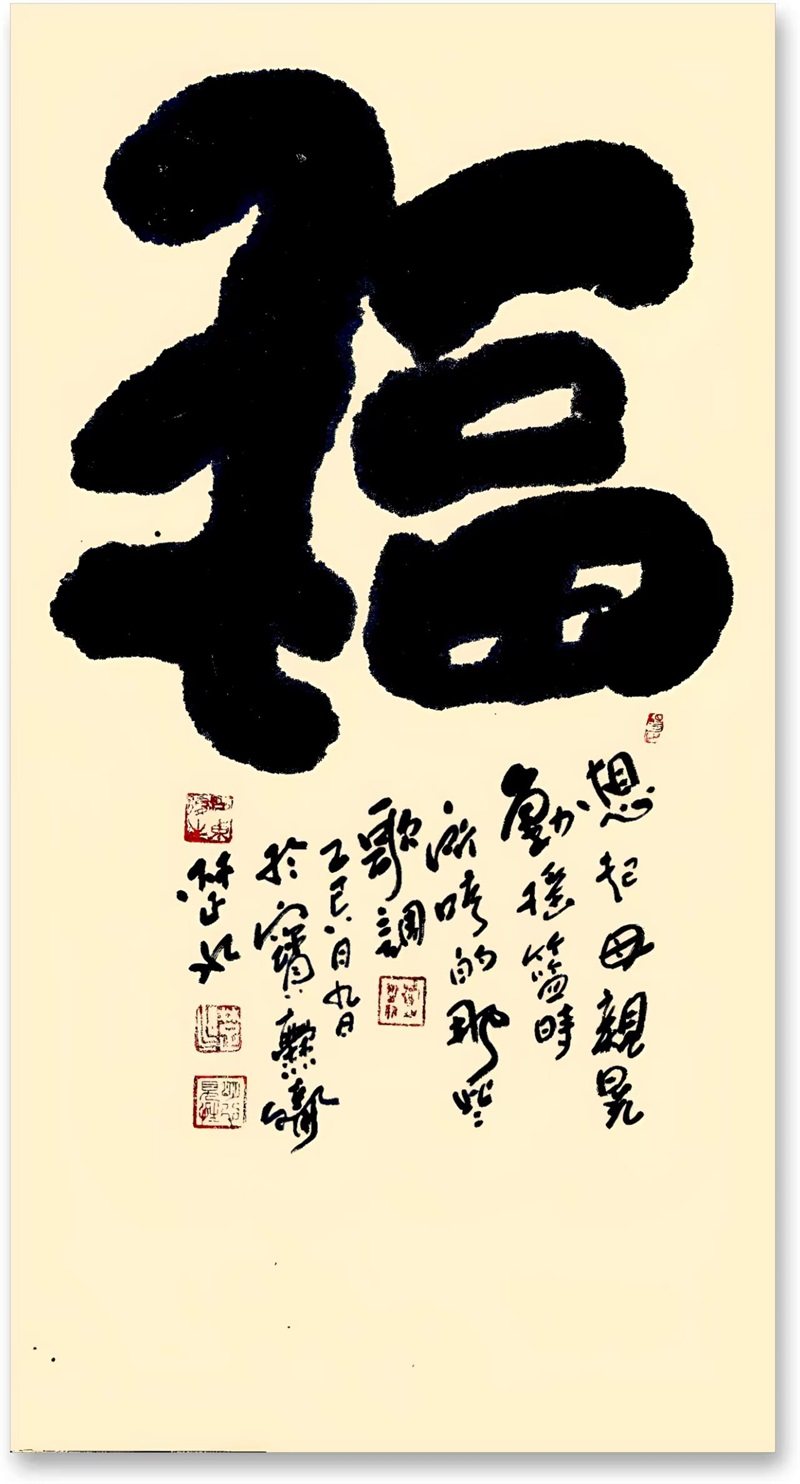 福
想起母親晃
動搖籃時
所哼的那些
歌調
乙巳八月九日
於寶